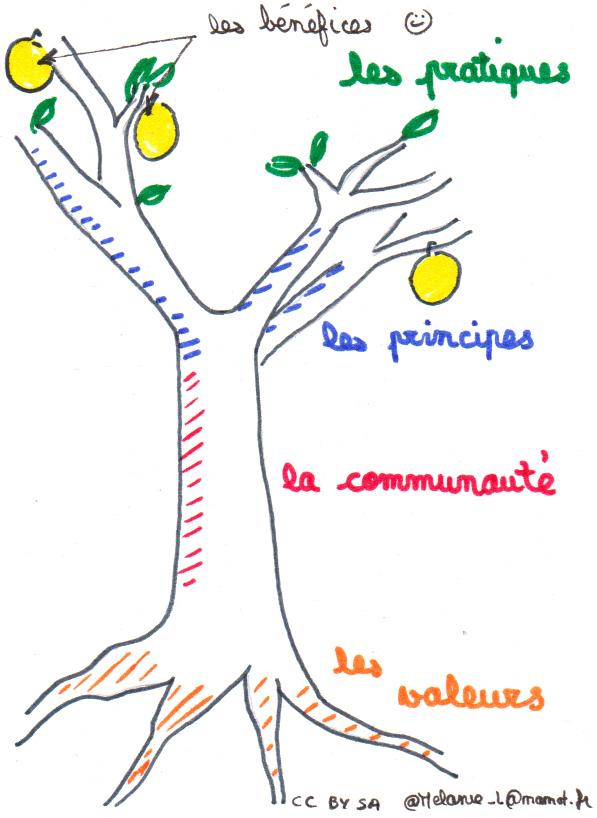 les bénéfices
les pratiques
les principes
la communauté
les
valeurs
CC BY SA @Melanie_L@mamot.fr